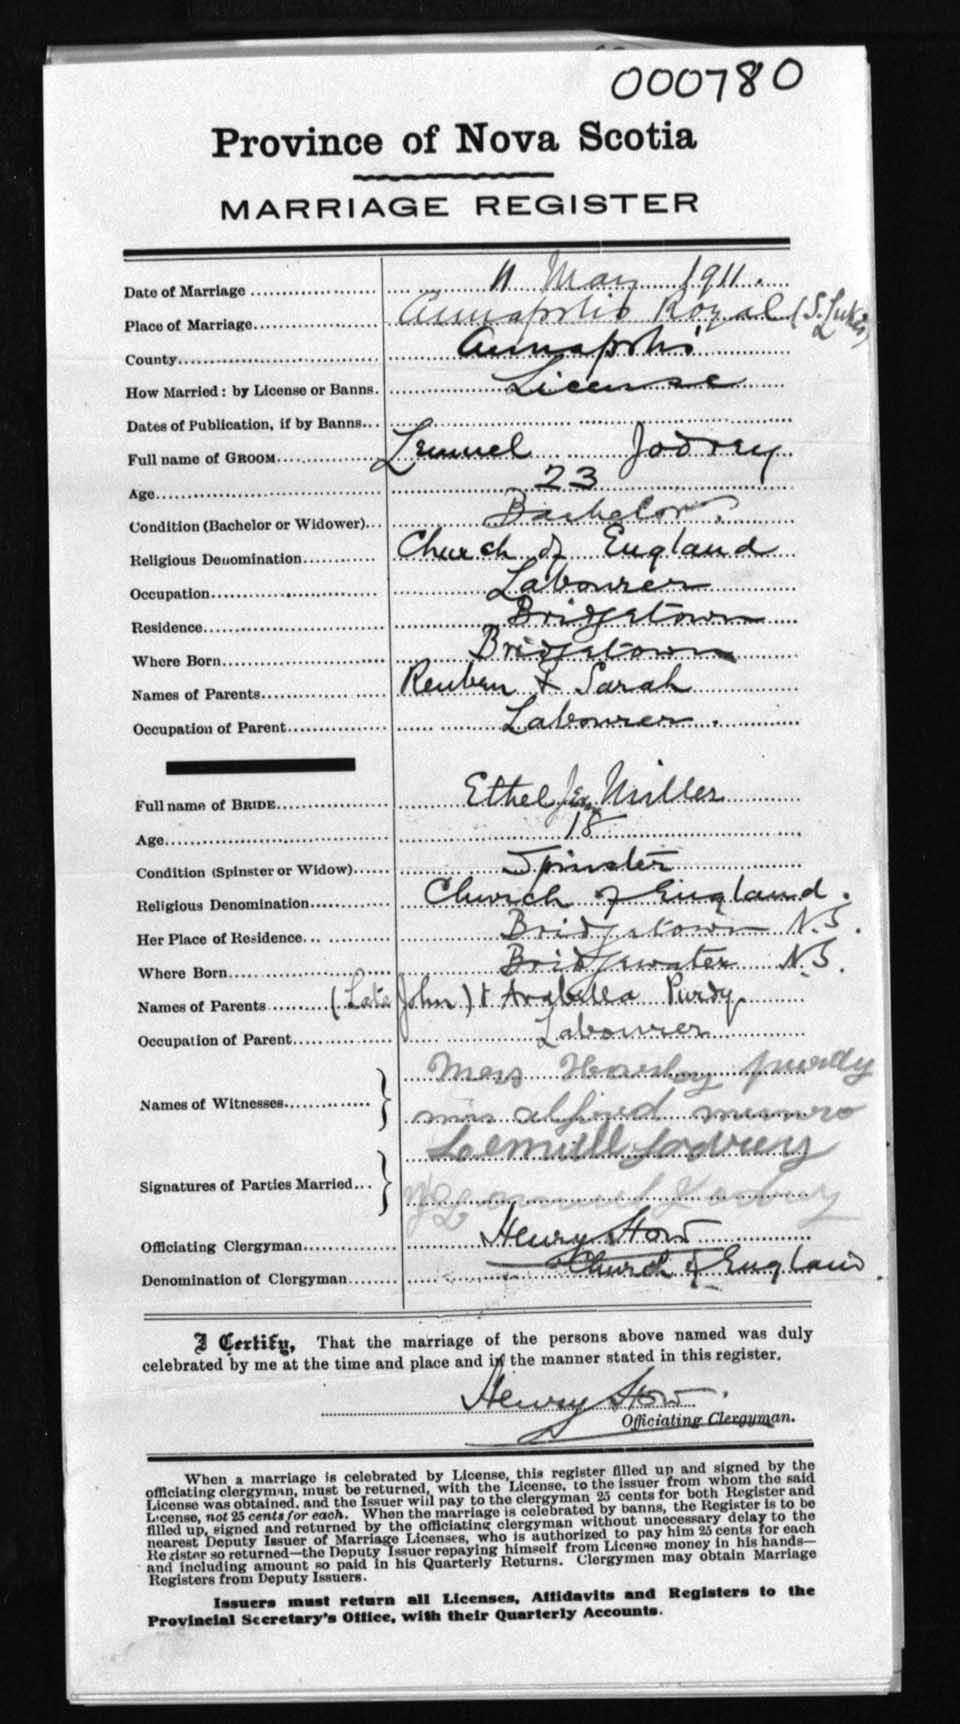 000780
Province of Nova Scotia
MARRIAGE REGISTER
Date of Marriage 11 May 1911.
Place of Marriage Annapolis Royal (S. Luke's)
County Annapolis
How Married: by License or Banns. License
Dates of Publication, if by Banns
Full name of GROOM Lemuel Jodrey
Age 23
Condition (Bachelor or Widower) Bachelor.
Religious Denomination Church of England
Occupation Labourer
Residence Bridgetown
Where Born Bridgetown
Names of Parents Reuben & Sarah
Occupation of Parent Labourer.
Full name of BRIDE Ethel Miller
Age 18
Condition (Spinster or Widow) Spinster
Religious Denomination Church of England.
Her Place of Residence Bridgetown N.S.
Where Born Bridgewater N.S.
Names of Parents (Late John) & Arabella Purdy
Occupation of Parent Labourer
Names of Witnesses Mrs purdy
mrs alfred munro
Signatures of Parties Married Lemuell Jodrey
Officiating Clergyman Henry How
Denomination of Clergyman Church of England.
I Certify, That the marriage of the persons above named was duly
celebrated by me at the time and place and in the manner stated in this register.
Henry How.
Officiating Clergyman.
When a marriage is celebrated by License, this register filled up and signed by the
officiating clergyman, must be returned, with the License, to the issuer from whom the said
License was obtained, and the Issuer will pay to the clergyman 25 cents for both Register and
License, not 25 cents for each. When the marriage is celebrated by banns, the Register is to be
filled up, signed and returned by the officiating clergyman without unecessary delay to the
nearest Deputy Issuer of Marriage Licenses, who is authorized to pay him 25 cents for each
Register so returned—the Deputy Issuer repaying himself from License money in his hands—
and including amount so paid in his Quarterly Returns. Clergymen may obtain Marriage
Registers from Deputy Issuers.
Issuers must return all Licenses, Affidavits and Registers to the
Provincial Secretary's Office, with their Quarterly Accounts.